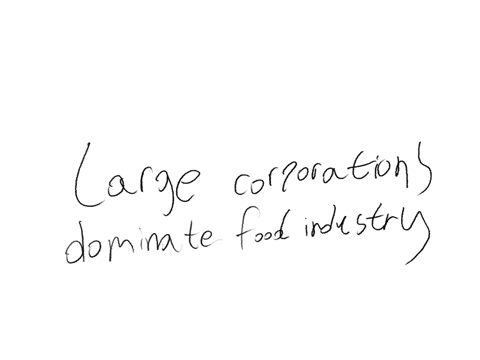 Large corporations
dominate food industry